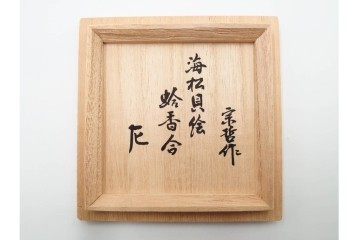 宗哲作
海松貝絵
蛤香合